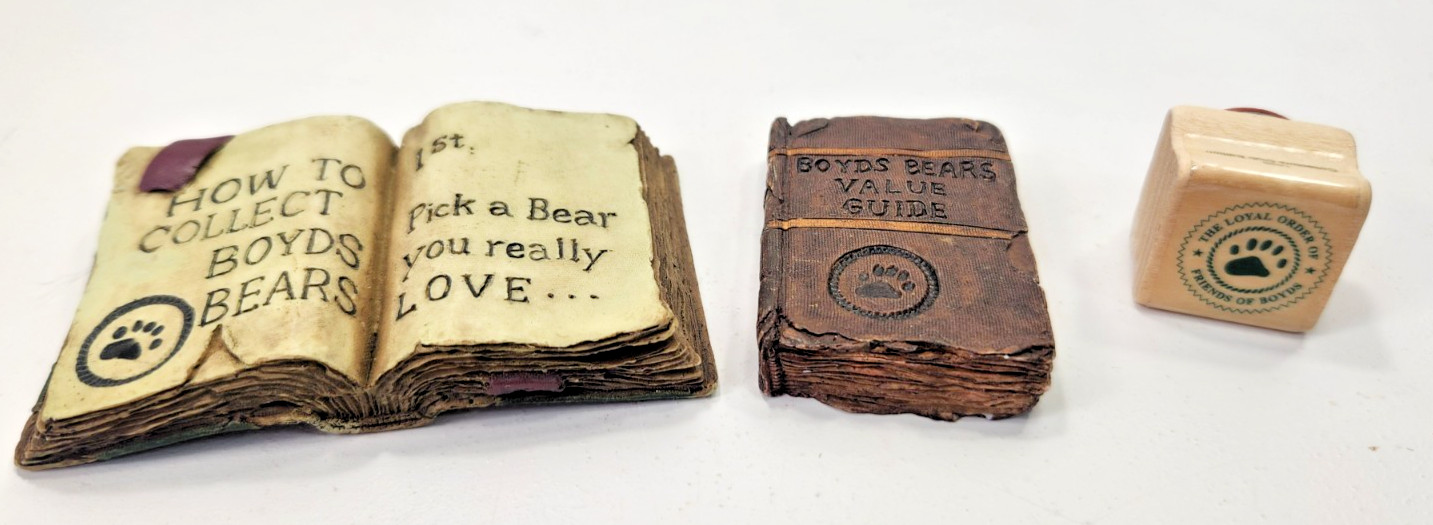 HOW TO
COLLECT
BOYDS
BEARS
1st.
Pick a Bear
you really
LOVE...
BOYDS BEARS
VALUE
GUIDE
THE LOYAL ORDER OF
FRIENDS OF BOYDS